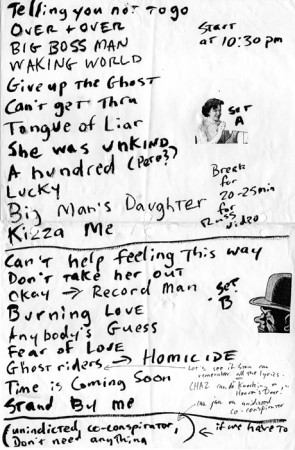 Telling you not to go
OVER + OVER
BIG BOSS MAN
WAKING WORLD
Give up the Ghost
Can't get Thru
Tongue of Liar
She was UNKIND
A hundred (Pero?)
LUCKY
Big Man's Daughter
Kizza Me
Start
at 10:30 pm
SET
A
Break
for
20-25min
for
video
Can't help feeling This way
Don't Take her out
Okay → Record Man
Burning Love
Anybody's Guess
Fear of Love
Ghostriders → HOMICIDE
Time is Coming Soon
Stand By me
Set
B
Let's see if
can
remember all the lyrics.
CHAZ can do Knocking on
Heaven's Door.
co-conspirator
(unindicted, co-conspirator,
Don't need anything)
← if we have to